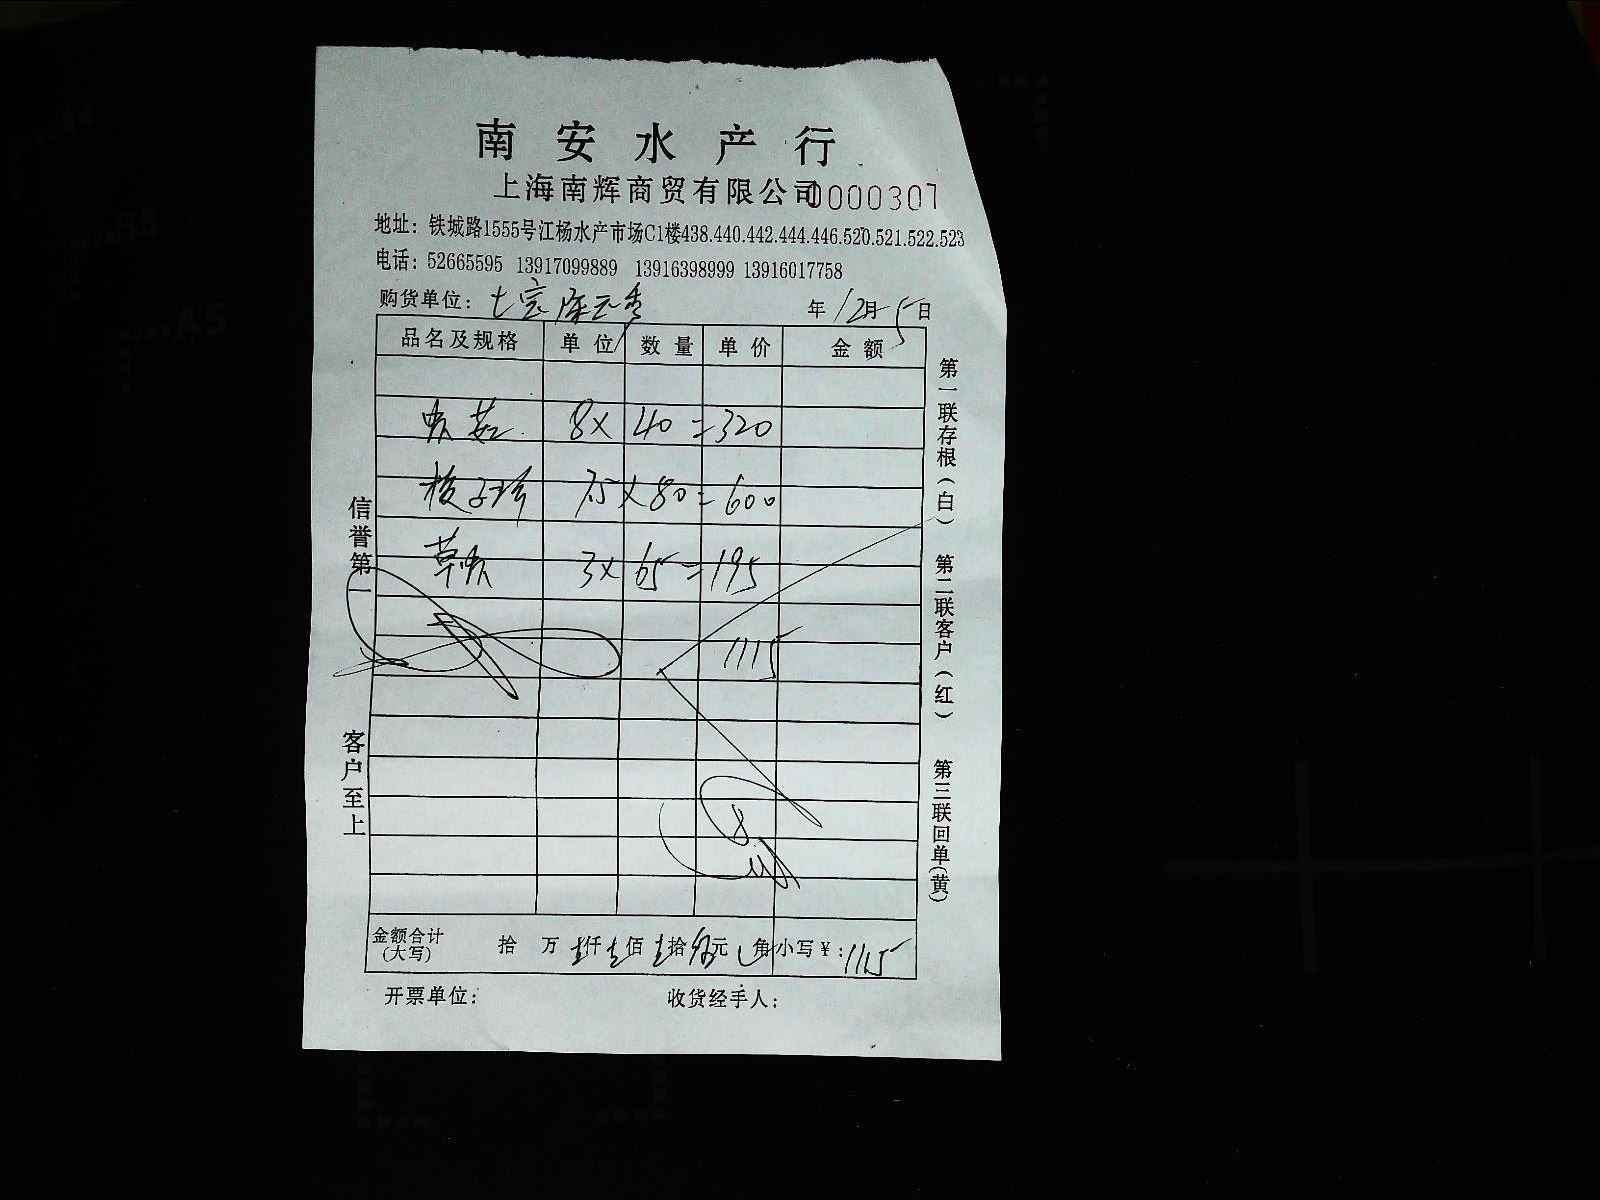 南安水产行
上海南辉商贸有限公司 0000307
地址：铁城路1555号江杨水产市场C1楼438.440.442.444.446.520.521.522.523
电话：52665595 13917099889 13916398999 13916017758
购货单位： 年12月5日
品名及规格 单位 数量 单价 金额
8× 40 =320
7.5×80=600
草虾 3×65=195
1115
金额合计(大写) 拾 万 壹仟壹佰壹拾伍元 角 小写￥：1115
开票单位： 收货经手人：
信誉第一
客户至上
第一联存根(白) 第二联客户(红) 第三联回单(黄)